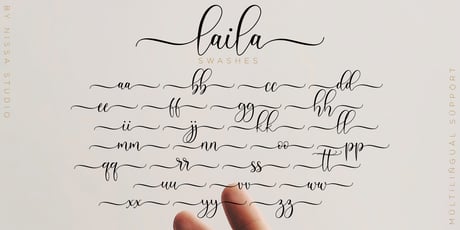 BY NISSA STUDIO
laila
SWASHES
aa bb cc dd
ee ff gg hh
ii jj kk ll
mm nn oo pp
qq rr ss tt
uu vv ww
xx yy zz
MULTILINGUAL SUPPORT